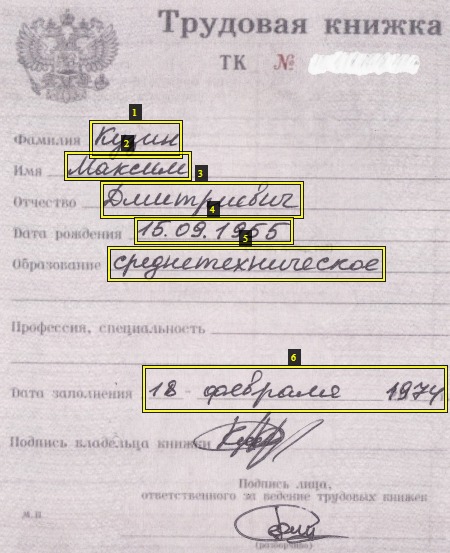 Трудовая книжка
ТК №
1
Фамилия
2
Имя Максим
3
Отчество Дмитриевич
4
Дата рождения 15.09.1955
5
Образование среднетехническое
Профессия, специальность
6
Дата заполнения 18 февраля 1974
Подпись владельца книжки
Подпись лица,
ответственного за ведение трудовых книжек
М.П.
(разборчиво)